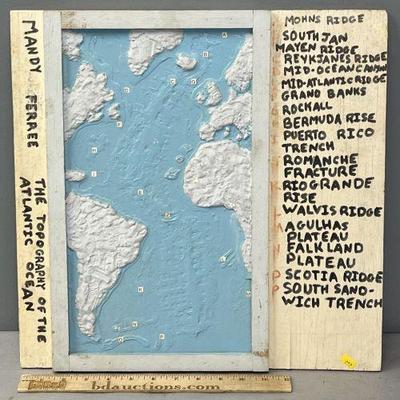 MANDY FERREE
THE TOPOGRAPHY OF THE
ATLANTIC OCEAN
MOHNS RIDGE
SOUTH JAN
MAYEN RIDGE
REYKJANES RIDGE
MID-OCEAN CANYON
MID-ATLANTIC RIDGE
GRAND BANKS
ROCKALL
BERMUDA RISE
PUERTO RICO
TRENCH
ROMANCHE
FRACTURE
RIO GRANDE
RISE
WALVIS RIDGE
AGULHAS
PLATEAU
FALKLAND
PLATEAU
SCOTIA RIDGE
SOUTH SAND-
WICH TRENCH
bdauctions.com